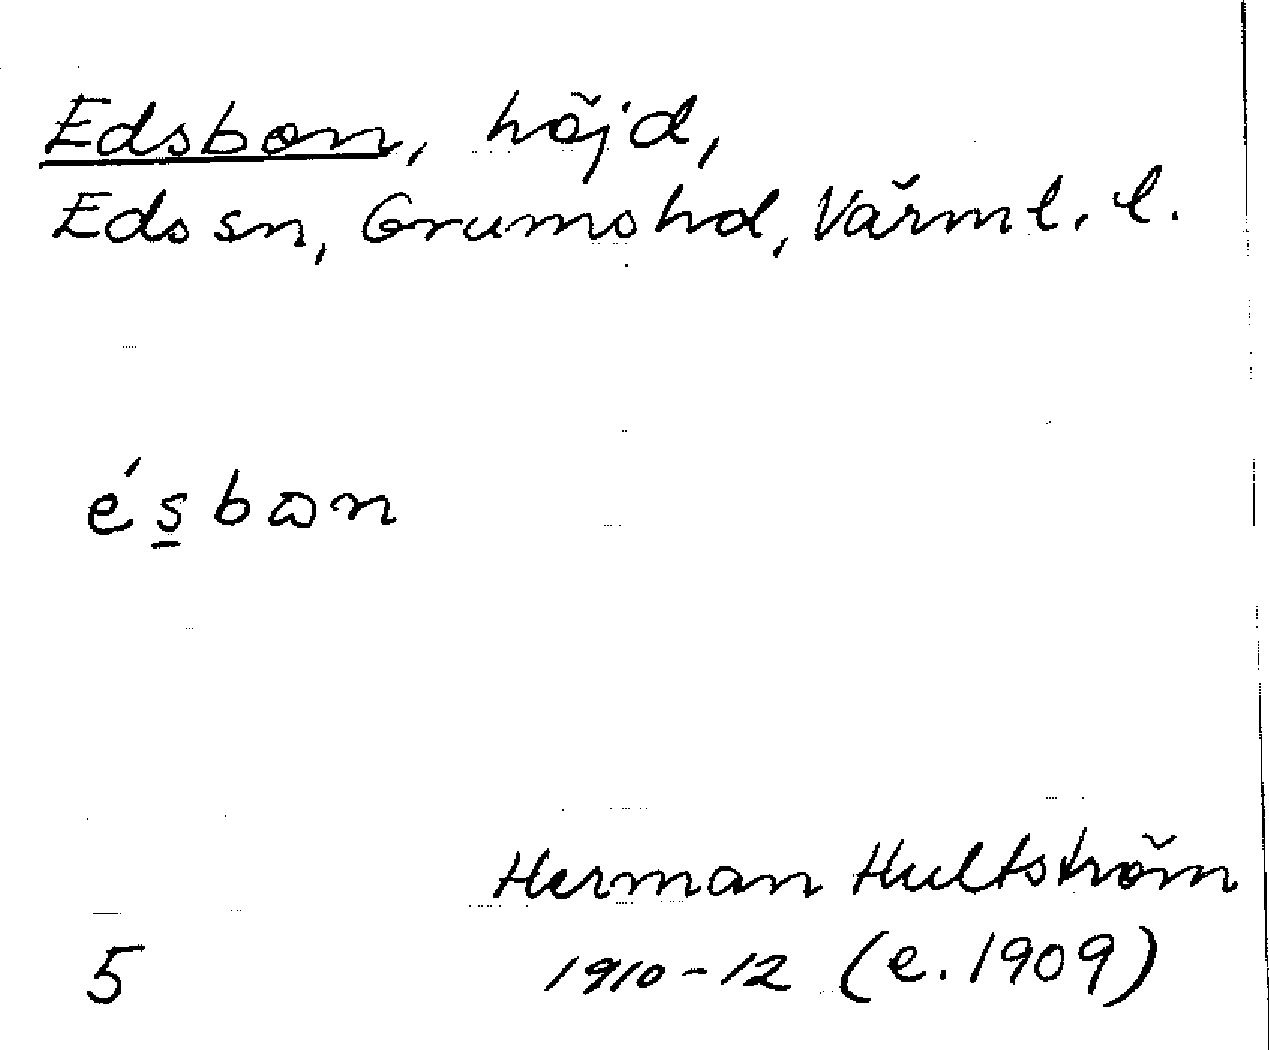 Edsbon, höjd,
Eds sn, Grums hd, Värml. l.
ésbɷn
Herman Hultström
5 1910-12 (e. 1909)